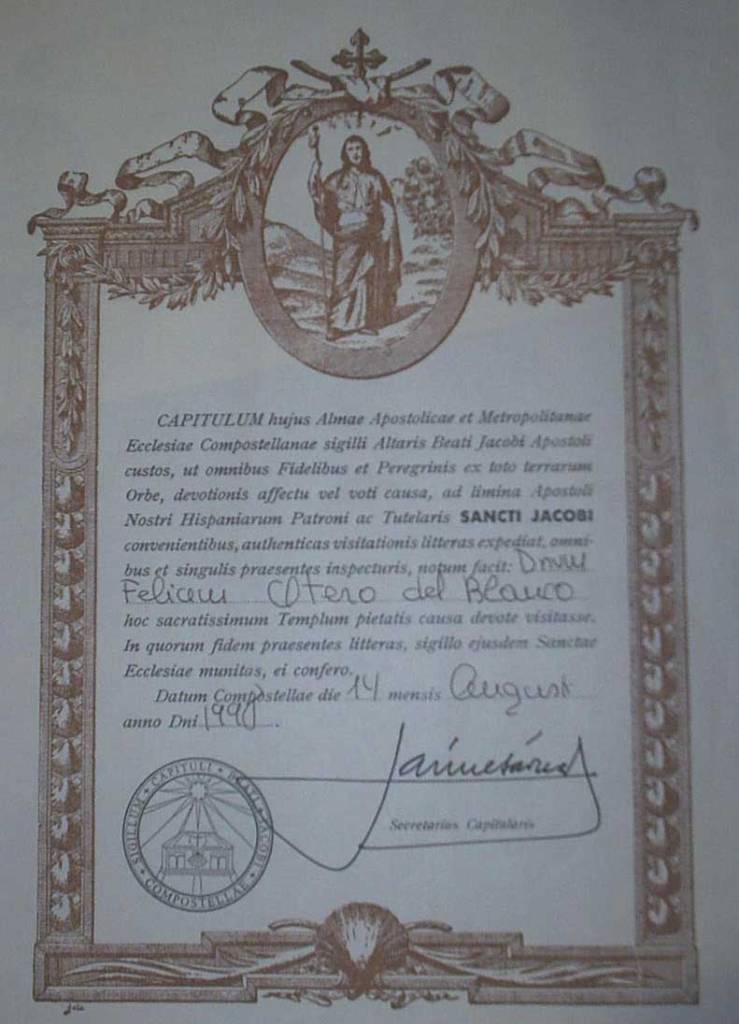 CAPITULUM hujus Almae Apostolicae et Metropolitanae
Ecclesiae Compostellanae sigilli Altaris Beati Jacobi Apostoli
custos, ut omnibus Fidelibus et Peregrinis ex toto terrarum
Orbe, devotionis affectu vel voti causa, ad limina Apostoli
Nostri Hispaniarum Patroni ac Tutelaris SANCTI JACOBI
convenientibus, authenticas visitationis litteras expediat, omni-
bus et singulis praesentes inspecturis, notum facit: Dnum
Felicem Otero del Blanco
hoc sacratissimum Templum pietatis causa devote visitasse.
In quorum fidem praesentes litteras, sigillo ejusdem Sanctae
Ecclesiae munitas, ei confero.
Datum Compostellae die 14 mensis August
anno Dni 1990.
Secretarius Capitularis
SIGILLUM • CAPITULI • BEATI • JACOBI • COMPOSTELLAE